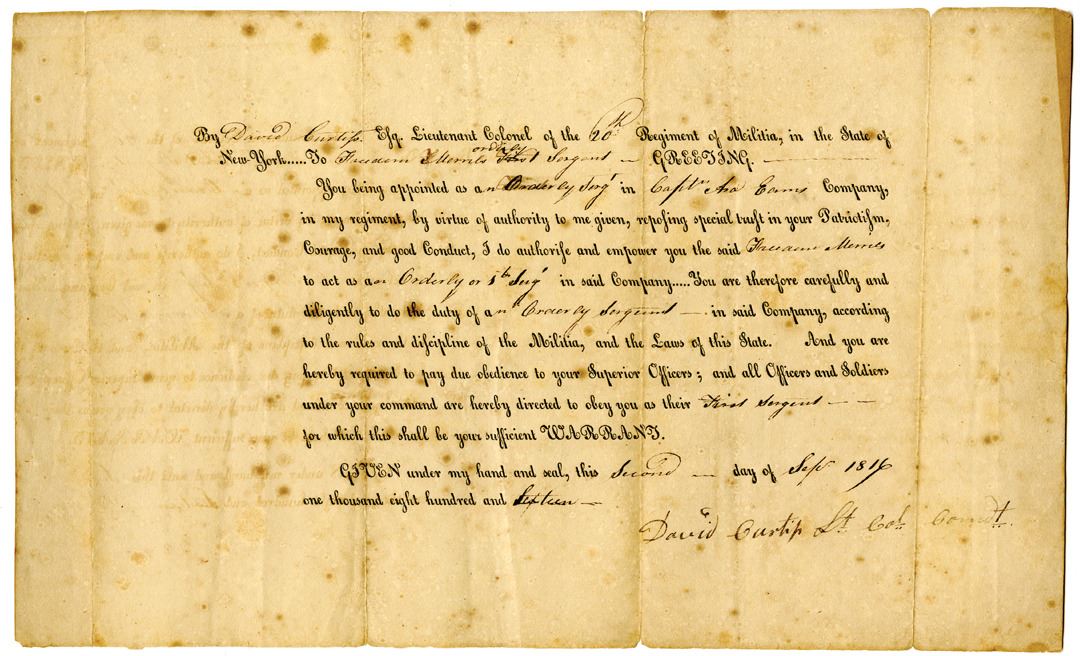 By David Curtiſs Esq. Lieutenant Colonel of the 20th Regiment of Militia, in the State of
orderly
New-York.....To Freedom Merrils First Sergent — GREETING.
You being appointed as an Orderly Sergt in Captn Company,
in my regiment, by virtue of authority to me given, repoſing special truſt in your Patriotiſm,
Courage, and good Conduct, I do authoriſe and empower you the said Freedom Merrils
to act as an Orderly or 1st Sergt in said Company.....You are therefore carefully and
diligently to do the duty of an Orderly Sergent — in said Company, according
to the rules and diſcipline of the Militia, and the Laws of this State. And you are
hereby required to pay due obedience to your Superior Officers; and all Officers and Soldiers
under your command are hereby directed to obey you as their First Sergent — —
for which this shall be your sufficient WARRANT.
GIVEN under my hand and seal, this Second — day of Sepr 1816
one thousand eight hundred and Sixteen —
David Curtiſs Lt Col Comdt.